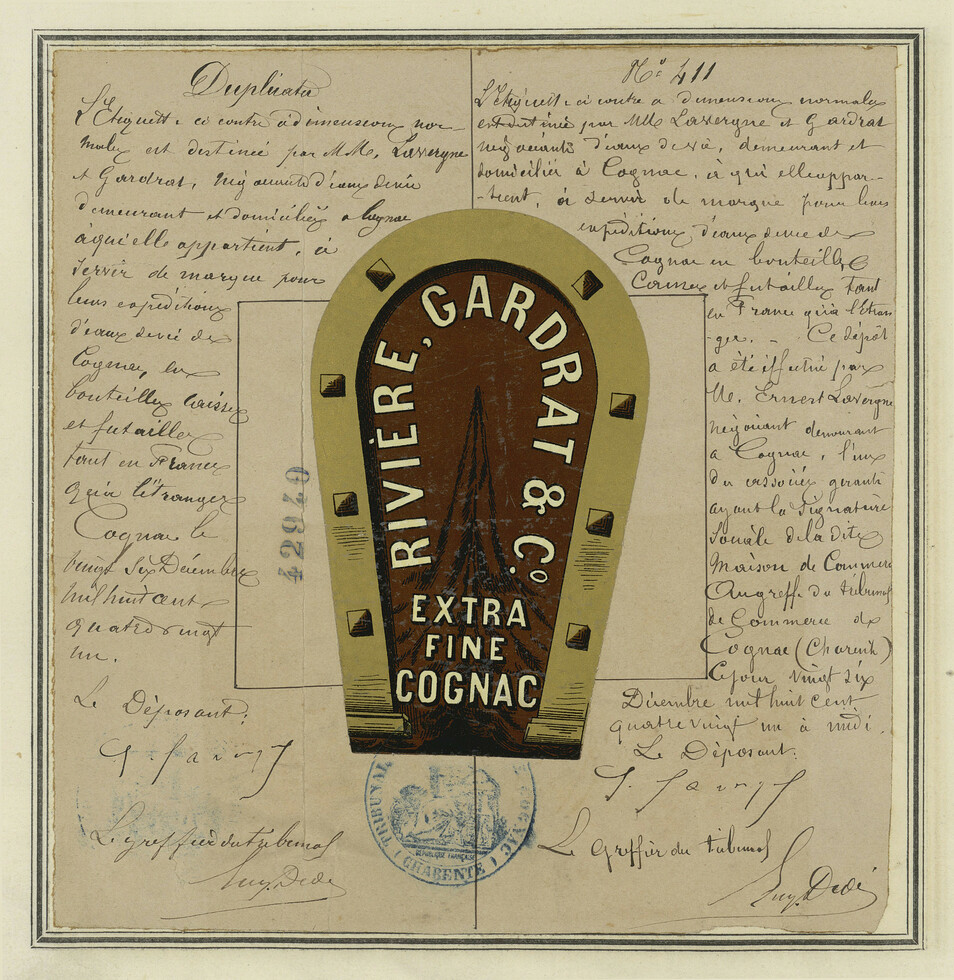 Duplicata
L'Etiquette ci contre à dimensions nor-
males est destinée par MM. Lavergne
et Gardrat, négociants d'eaux de vie
demeurant et domiciliés à Cognac
à qui elle appartient, à
servir de marque pour
leurs expéditions
d'eaux de vie de
Cognac, en
bouteilles caisses
et futailles
tant en France
qu'à l'étranger
Cognac le
vingt six Décembre
mil huit cent
quatre vingt
un.
Le Déposant:
Le greffier du tribunal
Eug. Dedé
No 411
L'Etiquette ci contre à dimensions normales
est destinée par MM Lavergne et Gardrat
négociants d'eaux de vie, demeurant et
domiciliés à Cognac, à qui elle appar-
-tient, à servir de marque pour leurs
expéditions d'eaux de vie de
Cognac en bouteilles
Caisses et futailles tant
en France qu'à l'Etran
-ger. - Ce dépôt
a été effectué par
M. Ernest Lavergne
négociant demeurant
à Cognac, l'un
des associés gérants
ayant la signature
sociale de la dite
Maison de Commerce
Au greffe du tribunal
de Commerce de
Cognac (Charente)
Ce jour vingt six
Décembre mil huit cent
quatre vingt un à midi.
Le Déposant:
Le Greffier du tribunal
Eug. Dedé
RIVIÈRE, GARDRAT & Co.
EXTRA
FINE
COGNAC
42940
TRIBUNAL DE COGNAC
RÉPUBLIQUE FRANÇAISE
(CHARENTE)